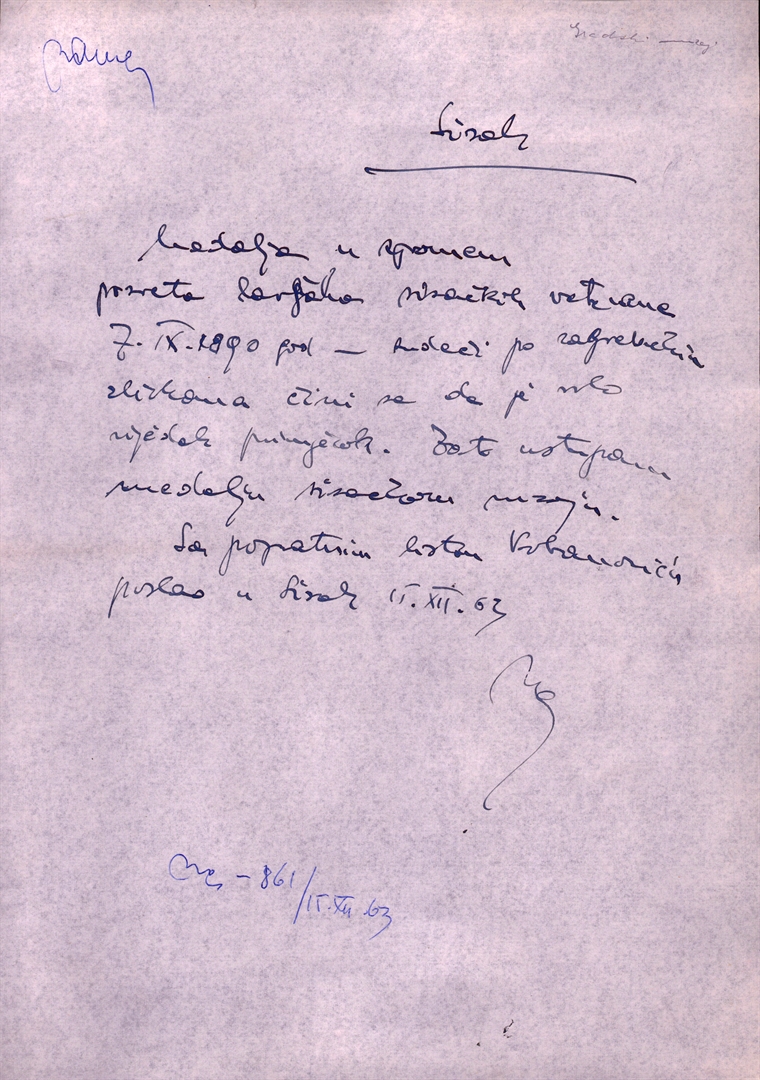 Gradski muzej
Sisak
Medalja u spomen
posveta barjaka sisačkih veterana
7. IX. 1890 god — sudeći po zagrebačkim
zbirkama čini se da je vrlo
rijedak primjerak. Zato ustupam
medalju sisačkom muzeju.
Sa popratnim listom Vrbanoviću
poslao u Sisak 15. XII. 63
- 861/15.XII.63